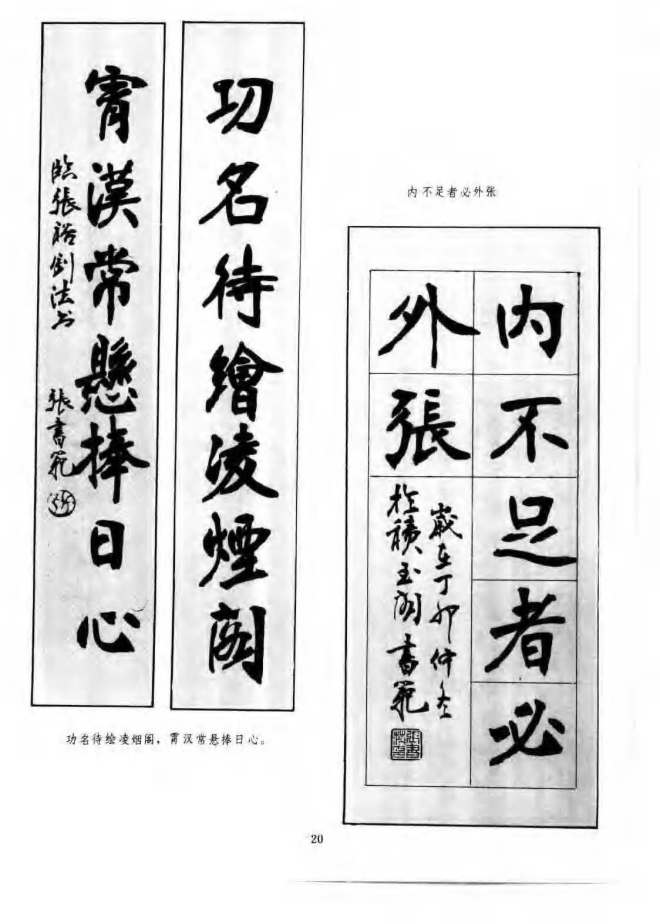 功名待繪凌煙閣
霄漢常懸捧日心
臨張裕釗法书
張書範
功名待绘凌烟阁，霄汉常悬捧日心。
内不足者必外张
内不足者必
外張
歲在丁卯仲冬
於積玉閣書範
20